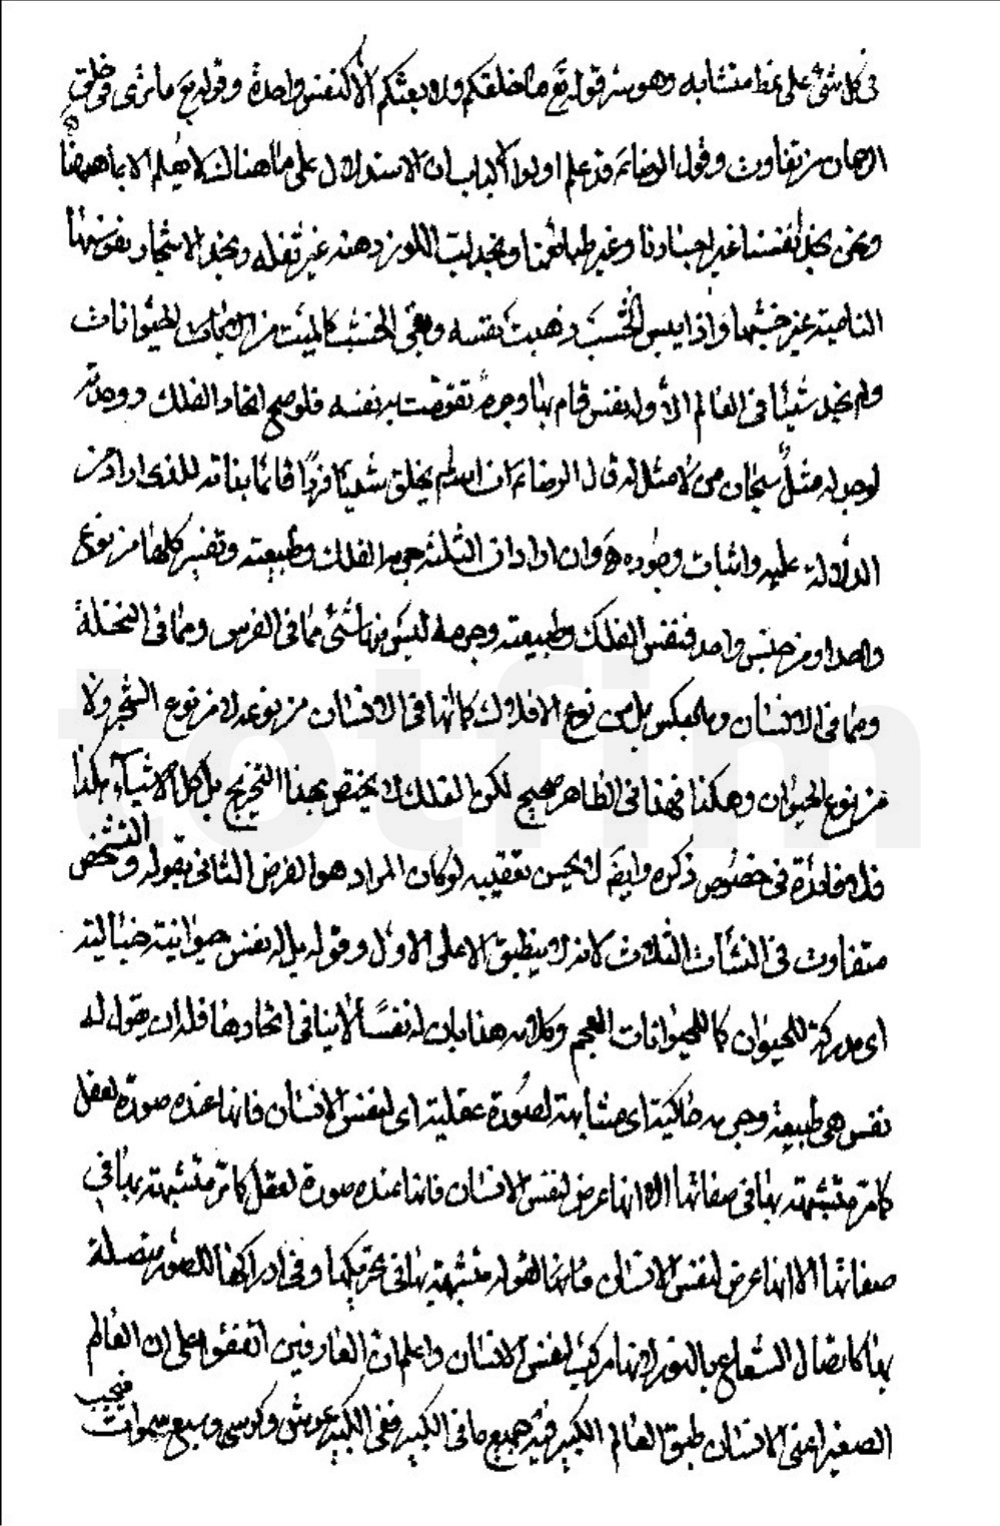 فى كل شئ على نمط متشابه وهو سر قوله تع ما خلقكم ولا بعثكم الا كنفس واحدة وقوله تع ما ترى فى خلق
الرحمان من تفاوت وقول الرضا ع قد علم اولوا الالباب ان الاستدلال على ما هنالك لا يعلم الا بما هيهنا
ونحن نجد انفسنا غير اجسادنا وغير طبائعنا ونجد لب اللوز دهنه غير ثفله ونجد الاشجار نفوسها
النامية غير خشبها واذا يبس الخشب ذهبت نفسه وبقى الخشب كالميت من الحيوانات
ولم نجد شيئا فى العالم الا وله نفس قام بها وجرم تقومت به نفسه فلو صح اتحاد الفلك ووحدته
لوجد له مثل سبحان من لا مثل له قال الرضا ع ان الله لم يخلق شيئا فردا قائما بذاته للذى اراد من
الدلالة عليه واثبات وجوده ه وان اراد ان الثلثة جرم الفلك وطبيعته ونفسه كلها من نوع
واحد او من جنس واحد فنفس الفلك وطبيعته وجرمه ليس من شئ مما فى الفرس ومما فى النخلة
ومما فى الانسان وبالعكس بل من نوع الافلاك كما انها فى الانسان من نوعه لا من نوع الشجر ولا
من نوع الحيوان وهكذا فهذا فى الظاهر صحيح لكن الفلك لا يختص بهذا التخريج بل كل الاشياء هكذا
فلا فائدة فى خصوص ذكره وايضا لا يحسن تعقيبه لو كان المراد هو الفرض الثانى بقوله والتشخص
متفاوت فى النشآت الثلاث لانه لا ينطبق الا على الاول وقوله بل له نفس حيوانية خيالية
اى مدركة للحيوان كما للحيوانات العجم وكلامه هنا بان له نفسا لا ينافى اتحادها فله ان يقول له
نفس هى طبيعة وجرمه حاكية اى مشابهة لصورة عقلية اى لنفس الانسان فانها عنده صورة لعقل
كامن متشبهة بها فى صفاتها الا انها عرض لنفس الانسان فانها عنده صورة لعقل كامن متشبهة بها فى
صفاتها الا انها عرض لنفس الانسان متشبهة بها فى تحريكها وفى ادراكها للصور متصلة
بها كاتصال الشعاع بالنور لانها مركب لنفس الانسان واعلم ان العارفين اتفقوا على ان العالم
الصغير اعنى الانسان طبق العالم الكبير فيه جميع ما فى الكبير ففى الكبير عرش وكرسى وسبع سموات فيجب